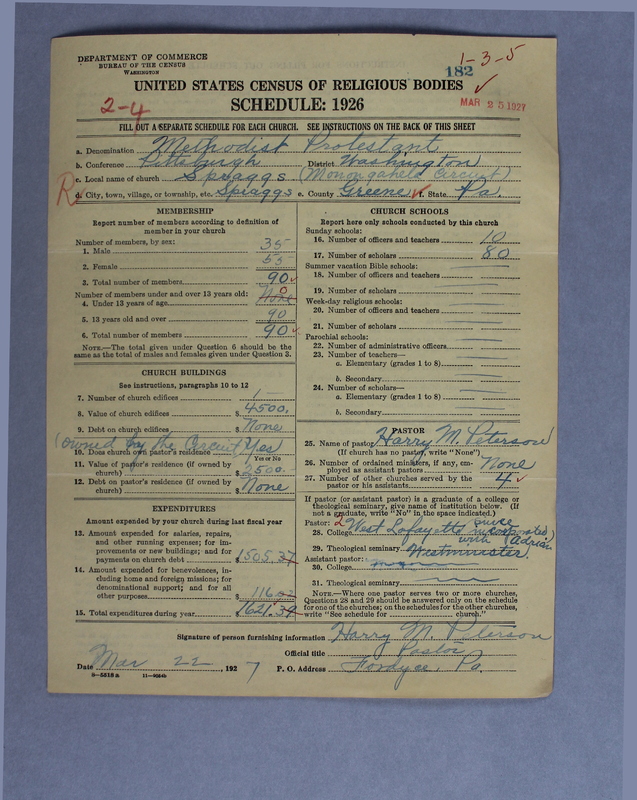 DEPARTMENT OF COMMERCE
BUREAU OF THE CENSUS
WASHINGTON
1-3-5
182
UNITED STATES CENSUS OF RELIGIOUS BODIES
SCHEDULE: 1926
2-4
MAR 25 1927
FILL OUT A SEPARATE SCHEDULE FOR EACH CHURCH. SEE INSTRUCTIONS ON THE BACK OF THIS SHEET
a. Denomination Methodist Protestant
b. Conference Pittsburgh District Washington
c. Local name of church Spraggs (Monongahela Circuit)
R
d. City, town, village, or township, etc. Spraggs e. County Greene f. State Pa.
MEMBERSHIP
Report number of members according to definition of
member in your church
Number of members, by sex:
1. Male 35
2. Female 55
3. Total number of members 90
Number of members under and over 13 years old:
4. Under 13 years of age None 0
5. 13 years old and over 90
6. Total number of members 90
NOTE.—The total given under Question 6 should be the
same as the total of males and females given under Question 3.
CHURCH BUILDINGS
See instructions, paragraphs 10 to 12
7. Number of church edifices 1
8. Value of church edifices $ 4500.
9. Debt on church edifices $ None
(owned by the Circuit
10. Does church own pastor's residence Yes
Yes or No
11. Value of pastor's residence (if owned by
church) $ 2500.-
12. Debt on pastor's residence (if owned by
church) $ None
EXPENDITURES
Amount expended by your church during last fiscal year
13. Amount expended for salaries, repairs,
and other running expenses; for im-
provements or new buildings; and for
payments on church debt $ 1505.37
14. Amount expended for benevolences, in-
cluding home and foreign missions; for
denominational support; and for all
other purposes $ 116.02
15. Total expenditures during year $ 1621.39
CHURCH SCHOOLS
Report here only schools conducted by this church
Sunday schools:
16. Number of officers and teachers 10
17. Number of scholars 80
Summer vacation Bible schools:
18. Number of officers and teachers
19. Number of scholars
Week-day religious schools:
20. Number of officers and teachers
21. Number of scholars
Parochial schools:
22. Number of administrative officers
23. Number of teachers—
a. Elementary (grades 1 to 8)
b. Secondary
24. Number of scholars—
a. Elementary (grades 1 to 8)
b. Secondary
PASTOR
25. Name of pastor Harry M. Peterson
(If church has no pastor, write "None")
26. Number of ordained ministers, if any, em-
ployed as assistant pastors None
27. Number of other churches served by the
pastor or his assistants 4
If pastor (or assistant pastor) is a graduate of a college or
theological seminary, give name of institution below. (If
not a graduate, write "No" in the space indicated.)
Pastor: 2 since
28. College West Lafayette incorporated
with Adrian
29. Theological seminary Westminister
Assistant pastor:
30. College
31. Theological seminary
NOTE.—Where one pastor serves two or more churches,
Questions 28 and 29 should be answered only on the schedule
for one of the churches; on the schedules for the other churches,
write "See schedule for church."
Signature of person furnishing information Harry M. Peterson
Official title Pastor
Date Mar 22, 1927 P. O. Address Fordyce, Pa.
8-5518 a 11-9684b